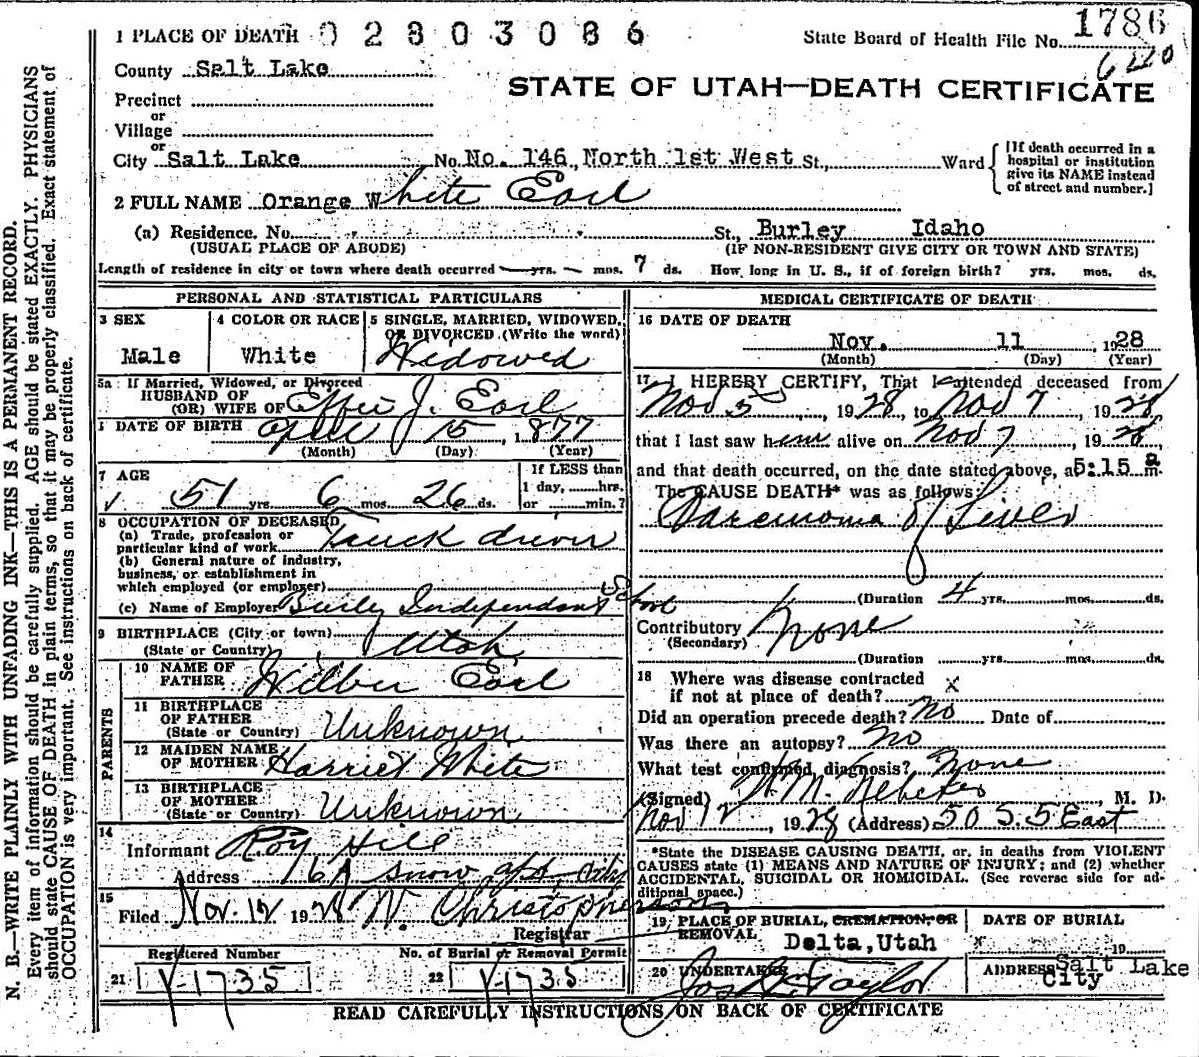 1 PLACE OF DEATH 02803086
State Board of Health File No. 1786
6220
County Salt Lake
STATE OF UTAH—DEATH CERTIFICATE
Precinct
or
Village
or
City Salt Lake No. No. 146, North 1st West St., Ward
[If death occurred in a hospital or institution give its NAME instead of street and number.]
2 FULL NAME Orange White Earl
(a) Residence. No. St., Burley Idaho
(USUAL PLACE OF ABODE) (IF NON-RESIDENT GIVE CITY OR TOWN AND STATE)
Length of residence in city or town where death occurred — yrs. — mos. 7 ds. How long in U. S., if of foreign birth? yrs. mos. ds.
PERSONAL AND STATISTICAL PARTICULARS
3 SEX
Male
4 COLOR OR RACE
White
5 SINGLE, MARRIED, WIDOWED, OR DIVORCED (Write the word)
Widowed
5a If Married, Widowed, or Divorced
HUSBAND OF
(OR) WIFE OF Effie J. Earl
DATE OF BIRTH Apr 15, 1877
(Month) (Day) (Year)
7 AGE
51 yrs. 6 mos. 26 ds.
If LESS than
1 day, hrs.
or min.?
8 OCCUPATION OF DECEASED
(a) Trade, profession or
particular kind of work Truck driver
(b) General nature of industry,
business, or establishment in
which employed (or employer)
(c) Name of Employer Burley Independant School
9 BIRTHPLACE (City or town)
(State or Country) Utah
PARENTS
10 NAME OF
FATHER Wilber Earl
11 BIRTHPLACE
OF FATHER
(State or Country) Unknown
12 MAIDEN NAME
OF MOTHER Harriet White
13 BIRTHPLACE
OF MOTHER
(State or Country) Unknown
14
Informant Roy Hill
Address 16A Snow Apts. City
15
Filed Nov. 12 1928 W. Christopherson
Registrar
Registered Number
21 V-1735
No. of Burial or Removal Permit
22 V-1735
MEDICAL CERTIFICATE OF DEATH
16 DATE OF DEATH
Nov. 11, 1928
(Month) (Day) (Year)
17 I HEREBY CERTIFY, That I attended deceased from
Nov 5, 1928, to Nov 7, 1928
that I last saw him alive on Nov 7, 1928,
and that death occurred, on the date stated above, at 5:15 a m.
The CAUSE DEATH* was as follows:
Carcinoma of Liver
(Duration 4 yrs. mos. ds.
Contributory None
(Secondary)
(Duration yrs. mos. ds.
18 Where was disease contracted
if not at place of death? x
Did an operation precede death? No Date of
Was there an autopsy? No
What test confirmed diagnosis? None
(Signed) W. M. Nebeker, M. D.
Nov 12, 1928 (Address) 50 S. 5 East
*State the DISEASE CAUSING DEATH, or, in deaths from VIOLENT
CAUSES state (1) MEANS AND NATURE OF INJURY; and (2) whether
ACCIDENTAL, SUICIDAL OR HOMICIDAL. (See reverse side for ad-
ditional space.)
19 PLACE OF BURIAL, CREMATION, OR
REMOVAL Delta, Utah
DATE OF BURIAL
x 19
20 UNDERTAKER
Jos. Wm. Taylor
ADDRESS Salt Lake
City
READ CAREFULLY INSTRUCTIONS ON BACK OF CERTIFICATE
N. B.—WRITE PLAINLY WITH UNFADING INK—THIS IS A PERMANENT RECORD.
Every item of information should be carefully supplied. AGE should be stated EXACTLY. PHYSICIANS
should state CAUSE OF DEATH in plain terms, so that it may be properly classified. Exact statement of
OCCUPATION is very important. See instructions on back of certificate.